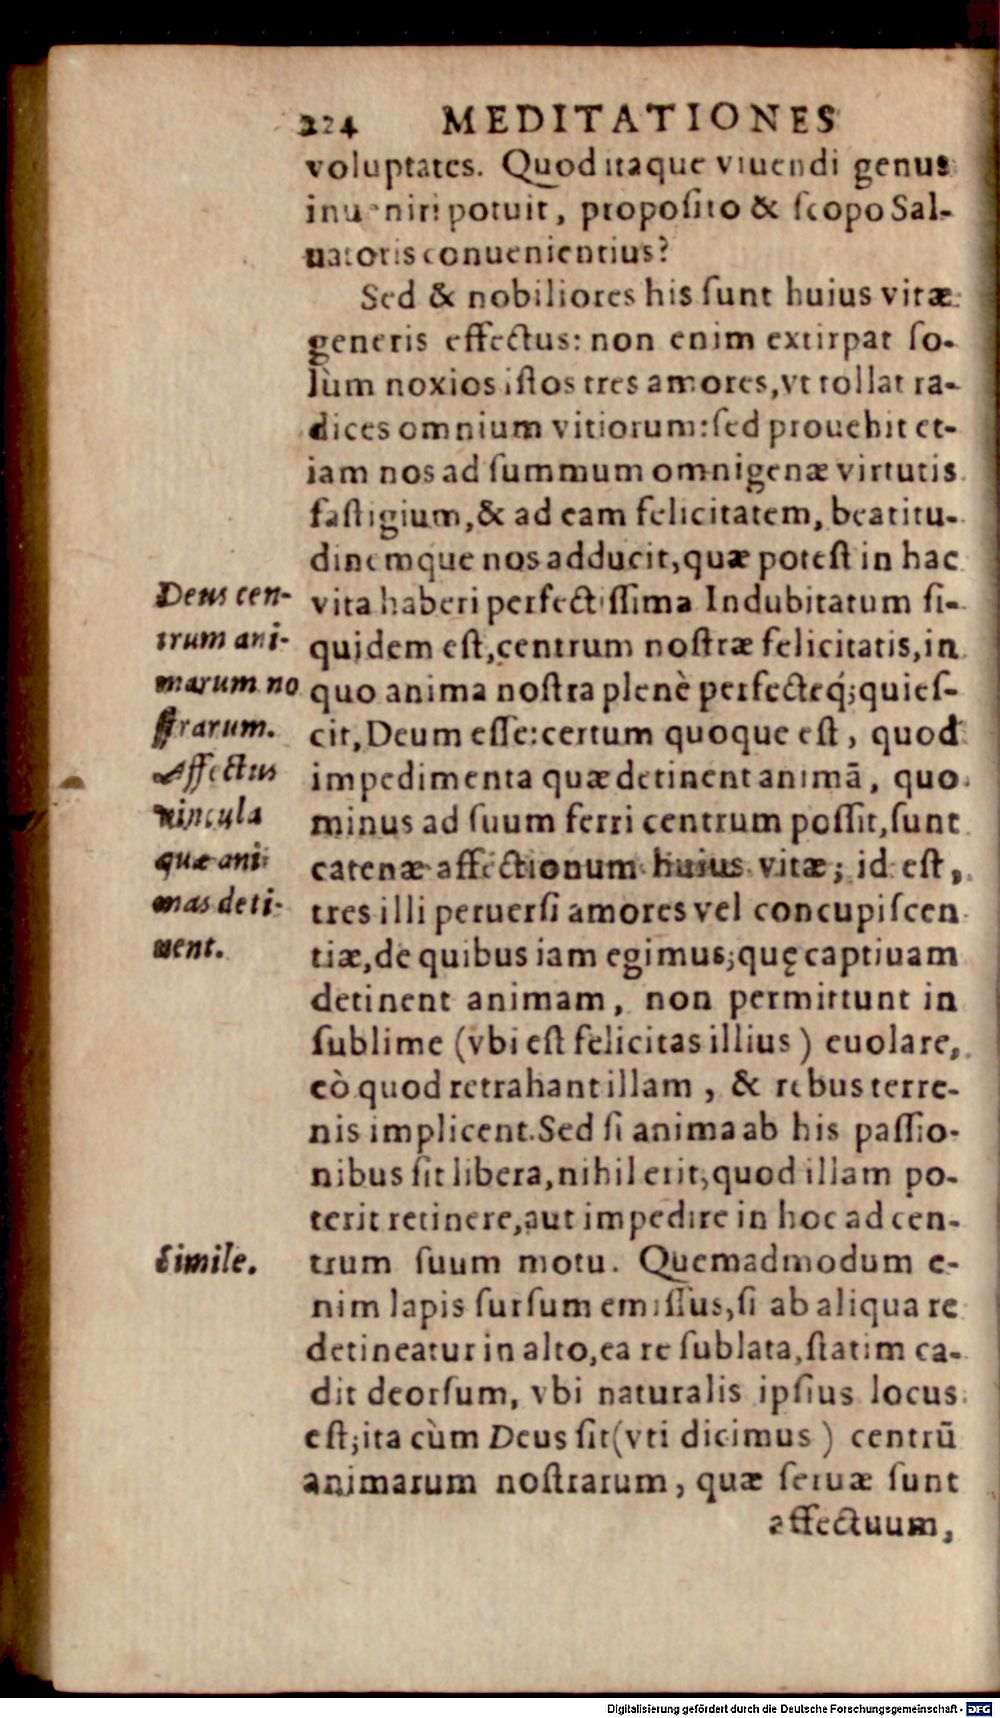 224 MEDITATIONES
voluptates. Quod itaque viuendi genus
inueniri potuit, proposito & scopo Sal-
uatoris conuenientius?
Sed & nobiliores his sunt huius vitæ
generis effectus: non enim extirpat so-
lùm noxios istos tres amores, vt tollat ra-
dices omnium vitiorum: sed prouehit et-
iam nos ad summum omnigenæ virtutis
fastigium, & ad eam felicitatem, beatitu-
dinemque nos adducit, quæ potest in hac
vita haberi perfectissima Indubitatum si-
quidem est, centrum nostræ felicitatis, in
quo anima nostra plenè perfecteq́; quies-
cit, Deum esse: certum quoque est, quod
impedimenta quæ detinent animā, quo
minus ad suum ferri centrum possit, sunt
catenæ affectionum huius vitæ; id est,
tres illi peruersi amores vel concupiscen
tiæ, de quibus iam egimus; quę captiuam
detinent animam, non permittunt in
sublime (vbi est felicitas illius) euolare,
eò quod retrahant illam, & rebus terre-
nis implicent. Sed si anima ab his passio-
nibus sit libera, nihil erit, quod illam po-
terit retinere, aut impedire in hoc ad cen-
trum suum motu. Quemadmodum e-
nim lapis sursum emissus, si ab aliqua re
detineatur in alto, ea re sublata, statim ca-
dit deorsum, vbi naturalis ipsius locus
est; ita cùm Deus sit (vti dicimus) centrū
animarum nostrarum, quæ seruæ sunt
affectuum,
Deus cen-
trum ani-
marum no
strarum.
Affectus
vincula
quæ ani
mas deti-
nent.
Simile.
Digitalisierung gefördert durch die Deutsche Forschungsgemeinschaft - DFG